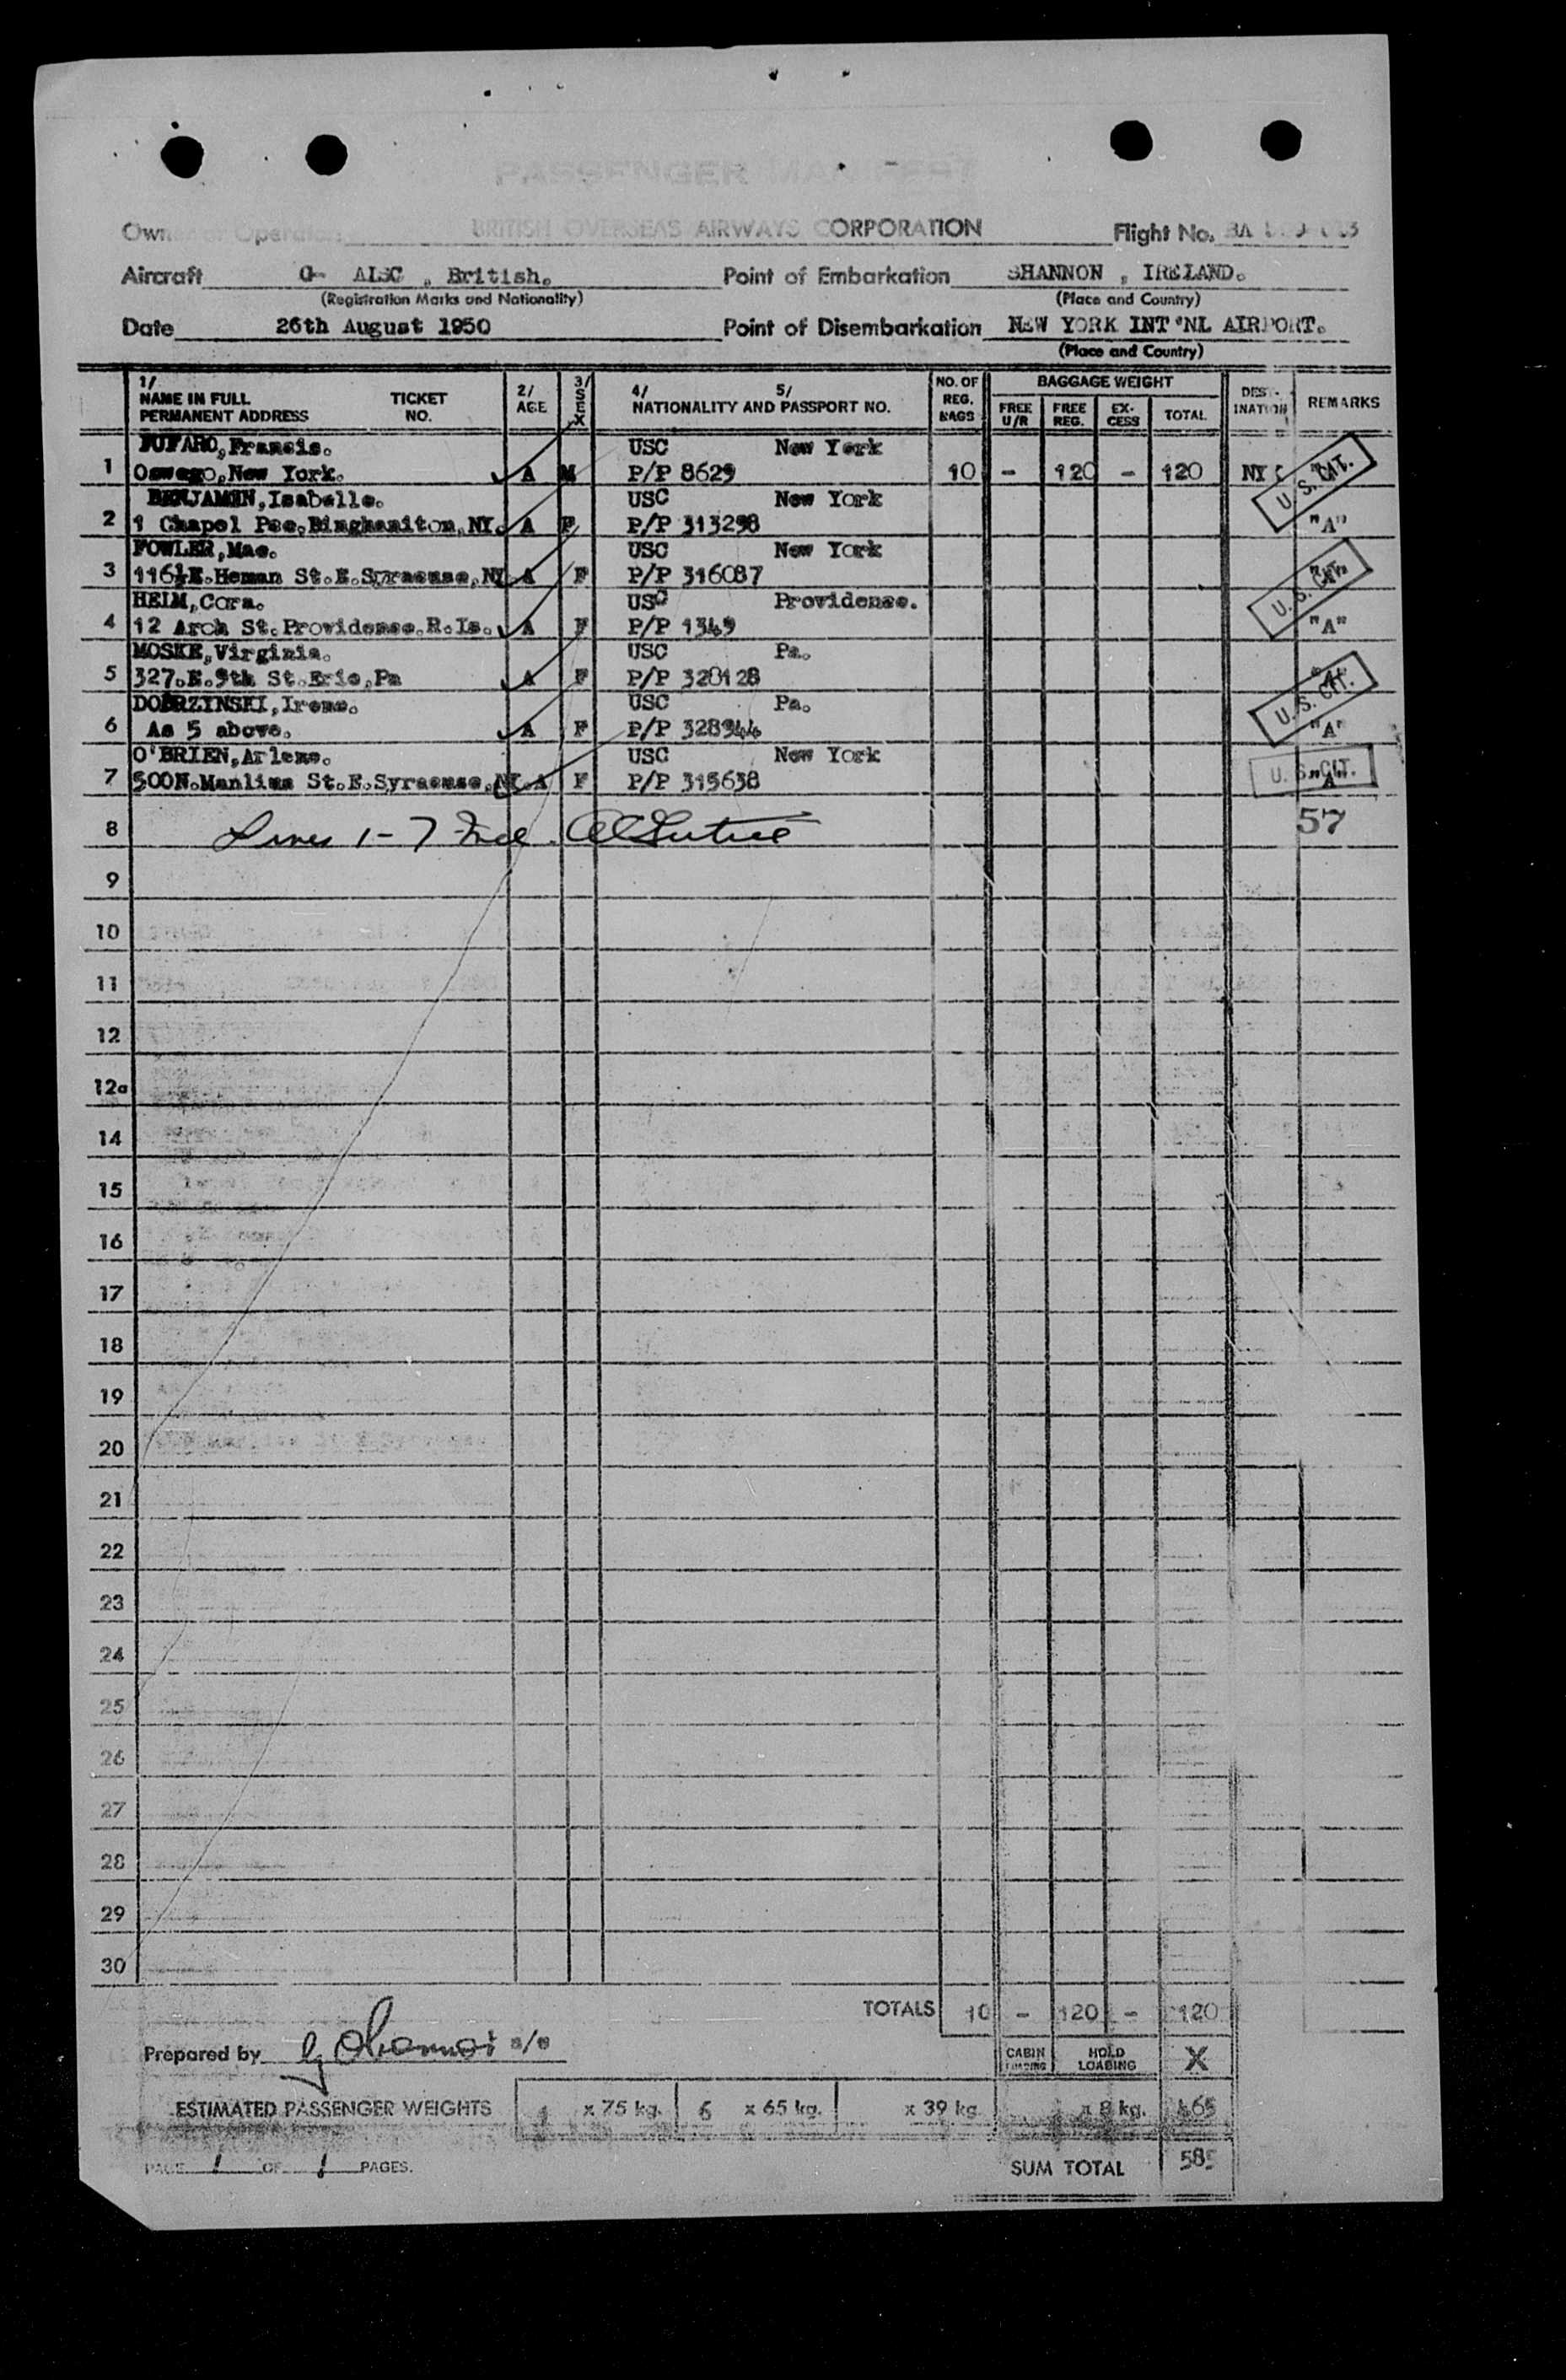 PASSENGER MANIFEST
Owner or Operator BRITISH OVERSEAS AIRWAYS CORPORATION Flight No. BA
Aircraft G- ALSC , British. Point of Embarkation SHANNON , IRELAND.
(Registration Marks and Nationality) (Place and Country)
Date 26th August 1950 Point of Disembarkation NEW YORK INT'NL AIRPORT.
(Place and Country)
1/ NAME IN FULL PERMANENT ADDRESS TICKET NO. 2/ AGE 3/ SEX 4/ 5/ NATIONALITY AND PASSPORT NO. NO. OF REG. BAGS BAGGAGE WEIGHT FREE U/R FREE REG. EX-CESS TOTAL DESTINATION REMARKS
Francis. USC New York
1 Oswego,New York. A M P/P 8629 10 - 120 - 120 NY U. S. CIT.
BENJAMIN,Isabelle. USC New York
2 1 Chapel Pce,Binghamiton,NY. A F P/P 313298 "A"
FOWLER,Mae. USC New York
3 116½E.Heman St.E.Syracuse,NY A F P/P 316087 "A" U. S. CIT.
HEIM,Cora. USC Providence.
4 12 Arch St.Providence.R.Is. A F P/P 1349 "A"
MOSKE,Virginia. USC Pa.
5 327.E.9th St.Erie,Pa A F P/P 328128 "A" U. S. CIT.
DOBRZINSKI,Irene. USC Pa.
6 As 5 above. A F P/P 328944 "A"
O'BRIEN,Arlene. USC New York
7 500N.Manlius St.E.Syracuse,NY A F P/P 315638 "A" U. S. CIT.
8 Lines 1-7 Incl. 57
9
10
11
12
12a
14
15
16
17
18
19
20
21
22
23
24
25
26
27
28
29
30
TOTALS 10 - 120 - 120
Prepared by CABIN LOADING HOLD LOADING X
ESTIMATED PASSENGER WEIGHTS 1 x 75 kg. 6 x 65 kg. x 39 kg x 8 kg. 465
PAGE 1 OF 1 PAGES. SUM TOTAL 585